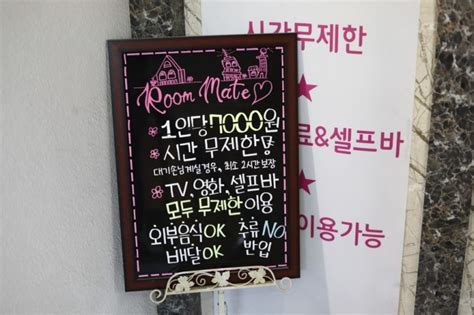 Room Mate♡
1인당 7000원
시간 무제한
대기손님계실경우, 최소 2시간 보장
TV, 영화, 셀프바
모두 무제한 이용
외부음식 OK
배달 OK
주류 NO
반입
시간무제한
료&셀프바
이용가능